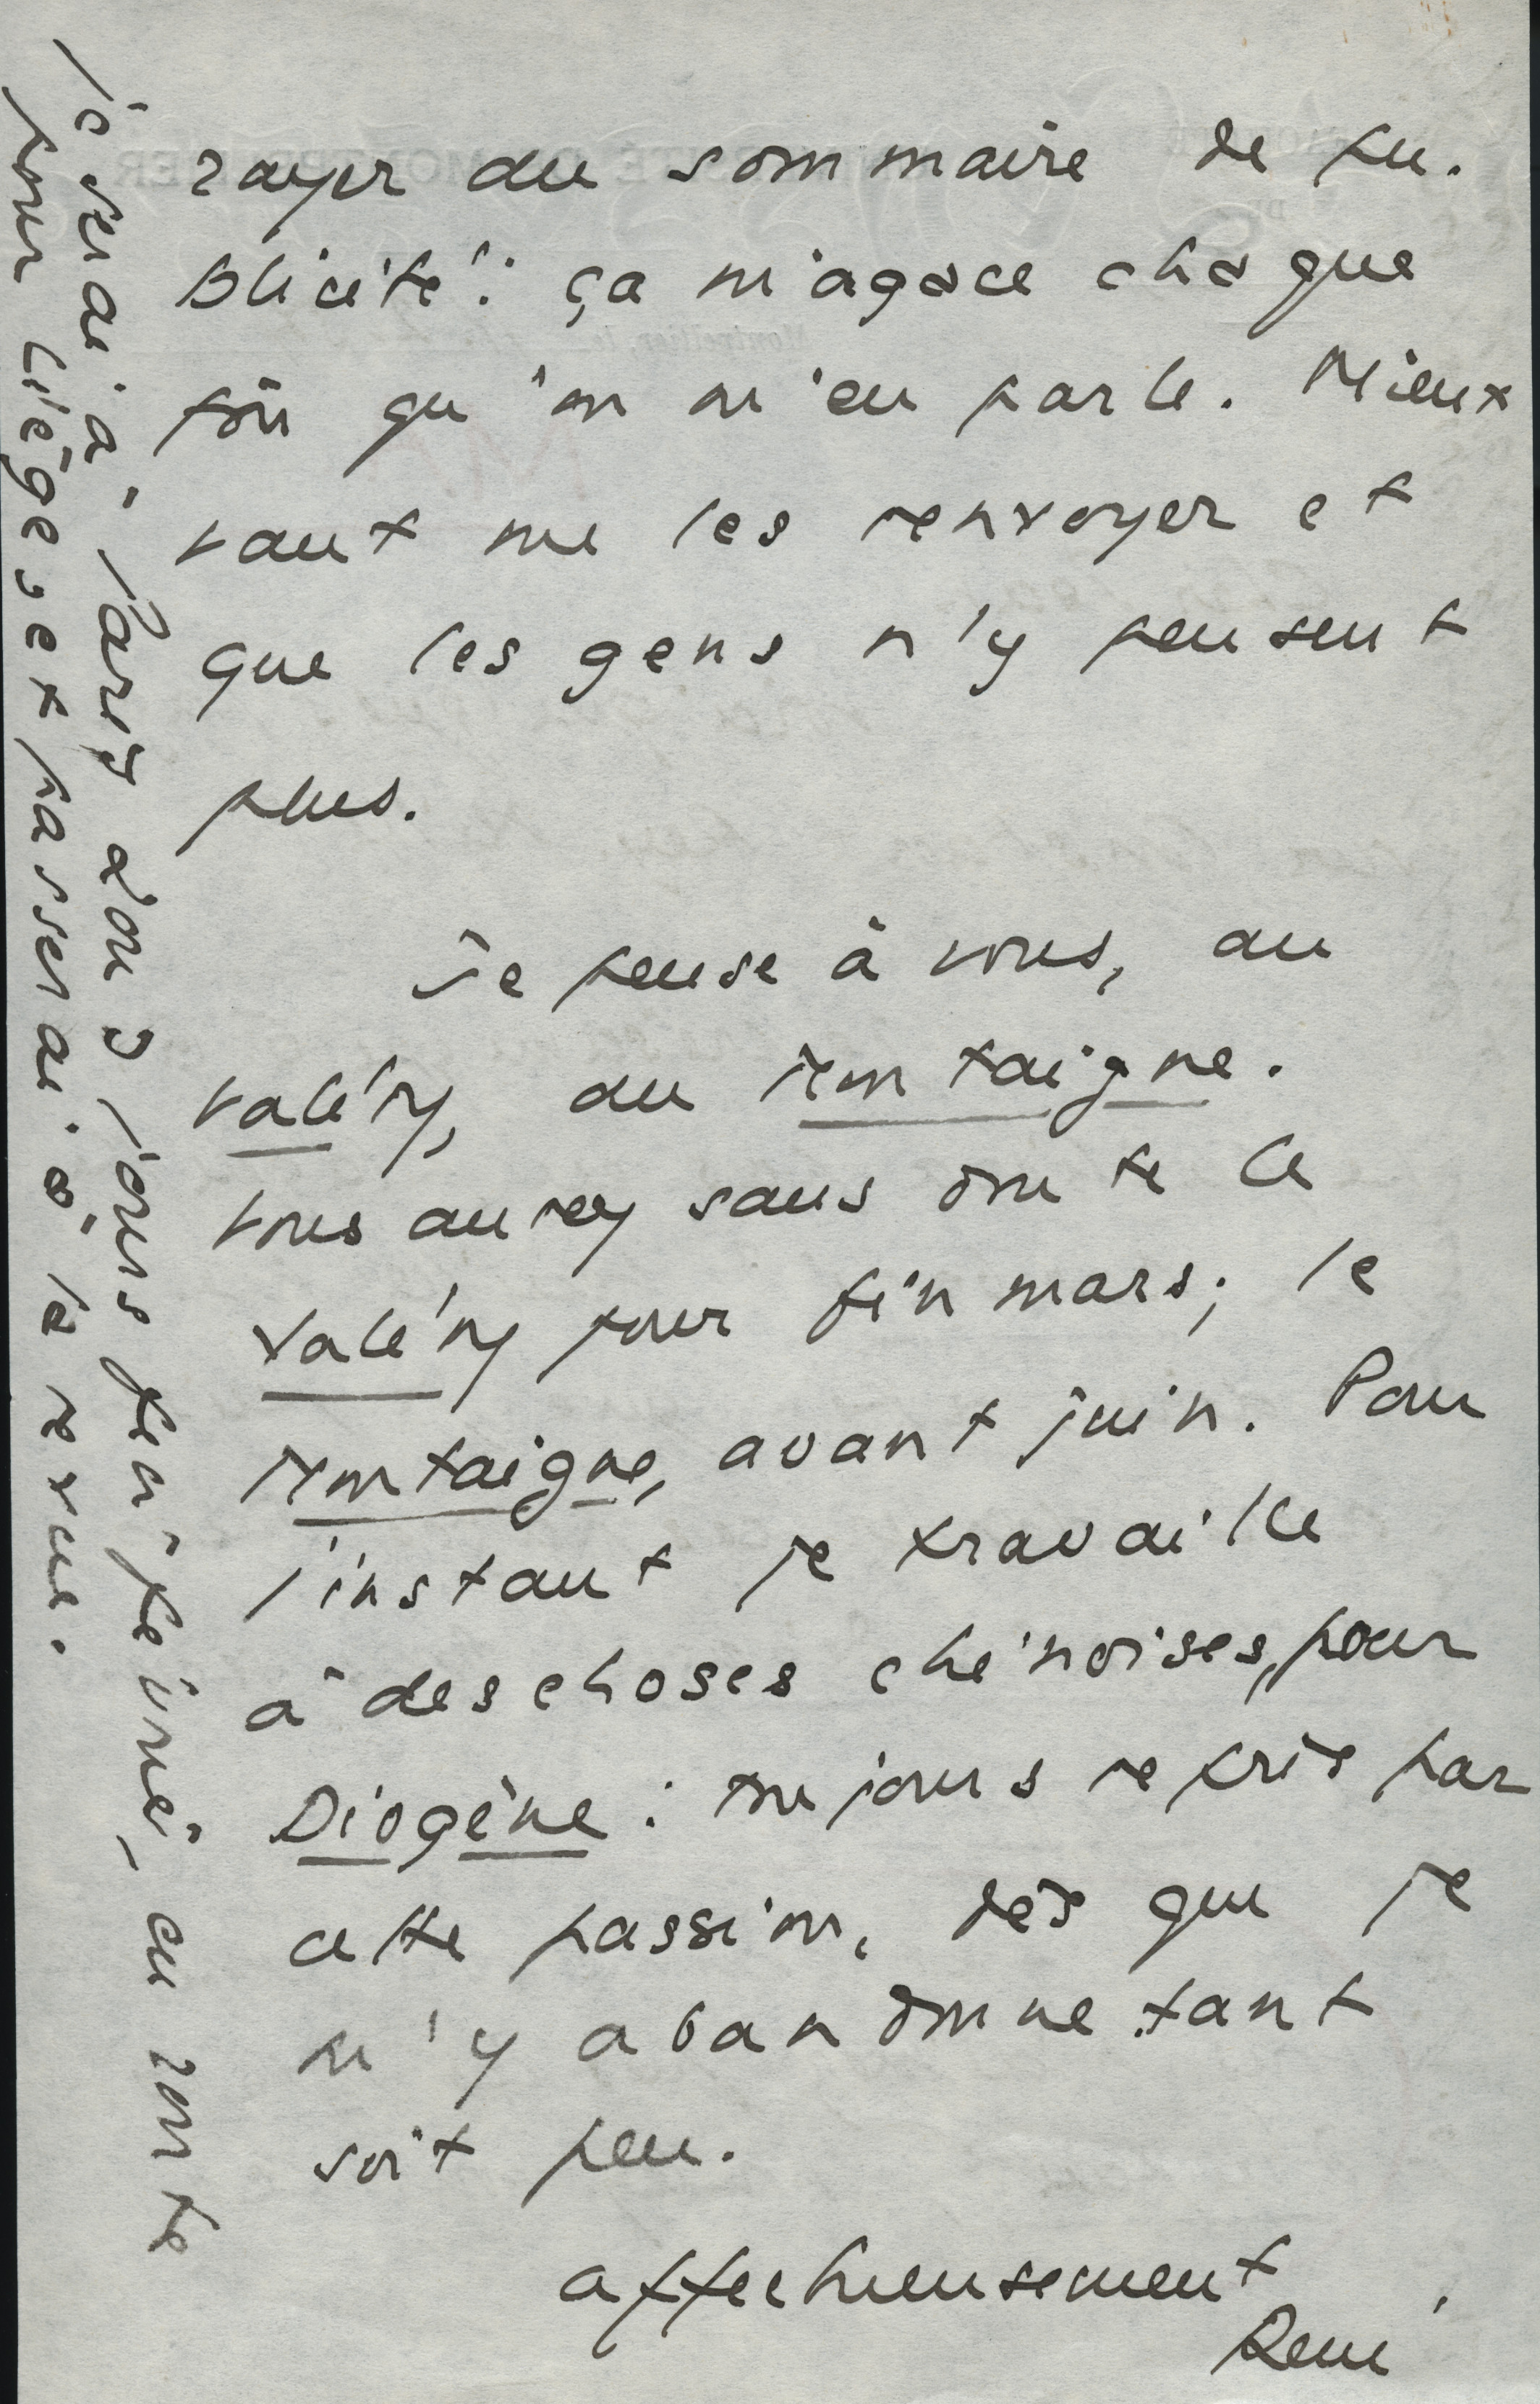 rayer du sommaire de pu-
blicité: ça m'agace chaque
fois qu'on m'en parle. Mieux
vaut me les renvoyer et
que les gens n'y pensent
plus.
Je pense à vous, au
Valéry, au Montaigne.
Vous aurez sans doute le
Valéry pour fin mars; le
Montaigne, avant juin. Pour
l'instant je travaille
à des choses chinoises, pour
Diogène: toujours repris par
cette passion, dès que je
m'y abandonne tant
soit peu.
affectueusement,
René
Je serai à Paris dans 3 jours en route
pour Liège et passerai à la revue.